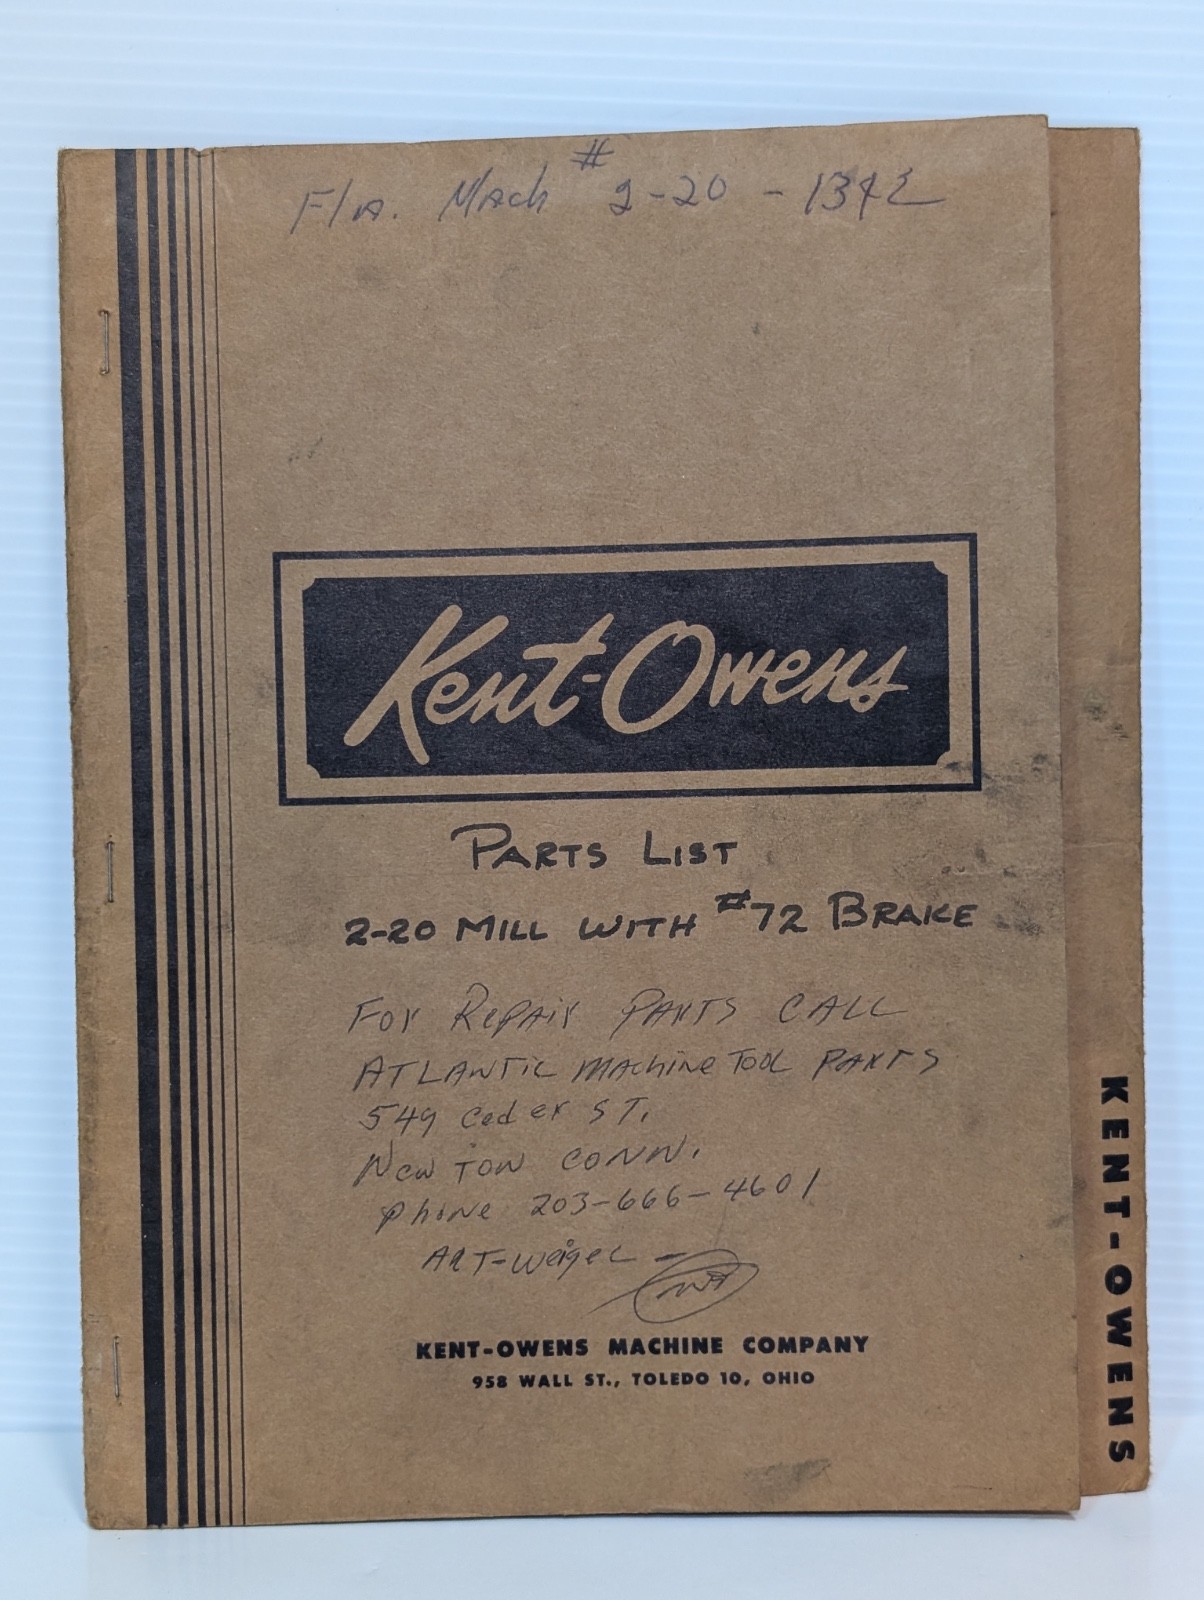 F/A. Mach # 2-20 - 1342
Kent-Owens
PARTS LIST
2-20 MILL WITH #72 BRAKE
FOR RepAir PARTS CALL
ATLANTIC MAchiNe TOOL PARTS
549 Ceder ST.
New TON CONN.
Phone 203-666-4601
ART-Weigel -
KENT-OWENS MACHINE COMPANY
958 WALL ST., TOLEDO 10, OHIO
KENT-OWENS